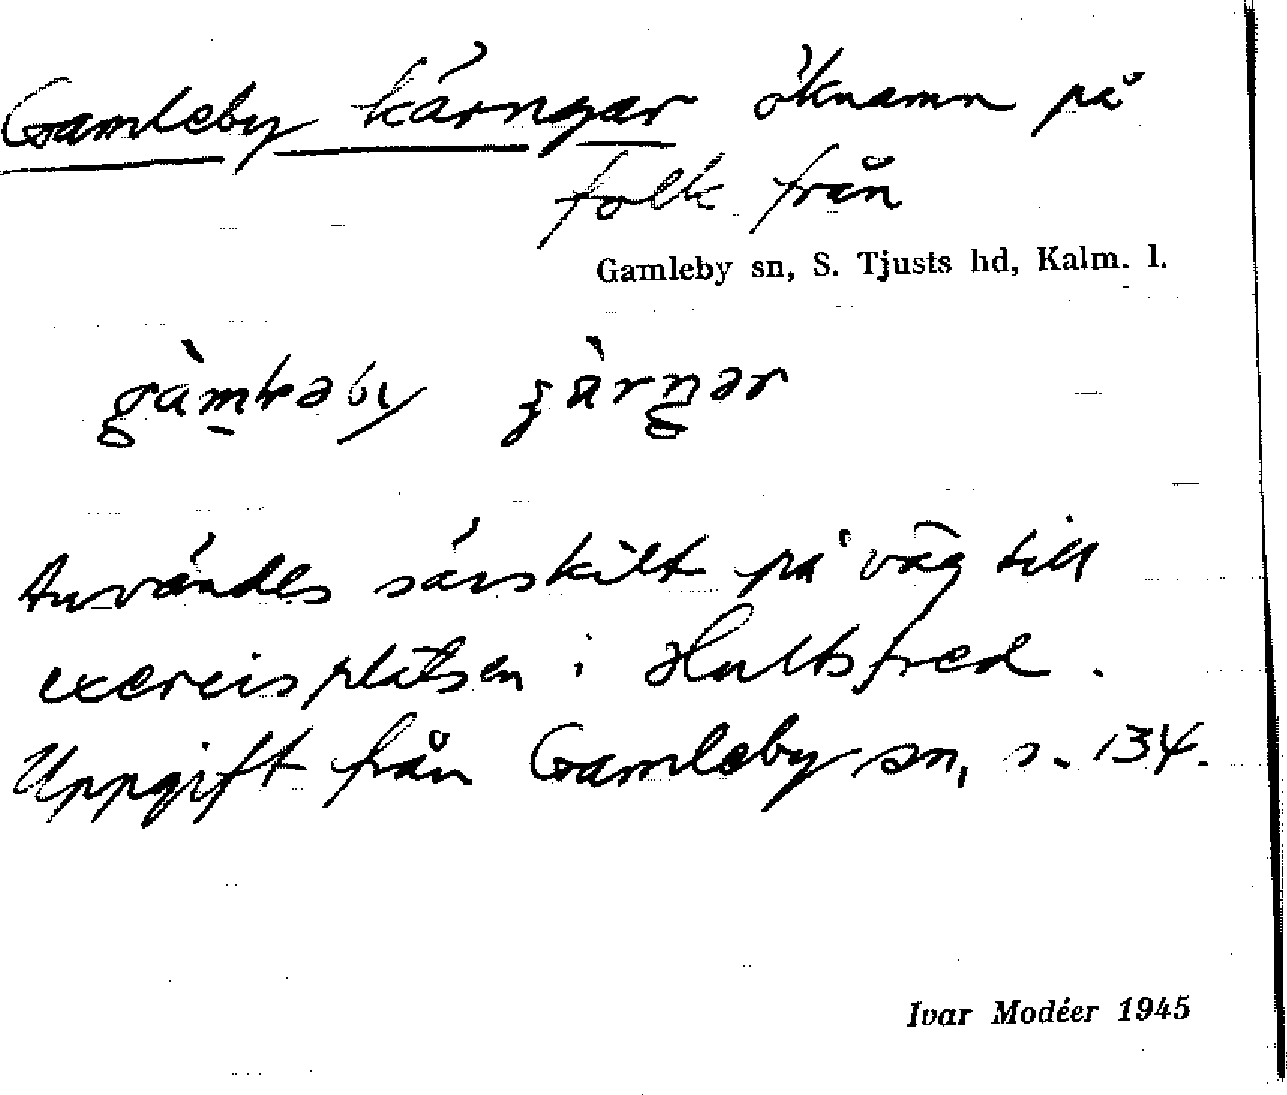 Gamleby kärngar öknamn på
folk från
Gamleby sn, S. Tjusts hd, Kalm. l.
Användes särskilt på väg till
exercisplatsen i Hultsfred.
Uppgift från Gamleby sn, s. 134.
Ivar Modéer 1945